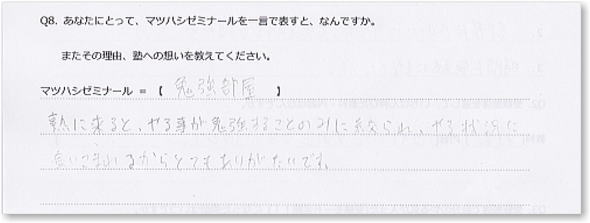 Q8. あなたにとって、マツハシゼミナールを一言で表すと、なんですか。
またその理由、塾への想いを教えてください。
マツハシゼミナール = 【 勉強部屋 】
塾に来ると、やる事が勉強することのみに絞られ、やる状況に
追いこまれるからとてもありがたいです。